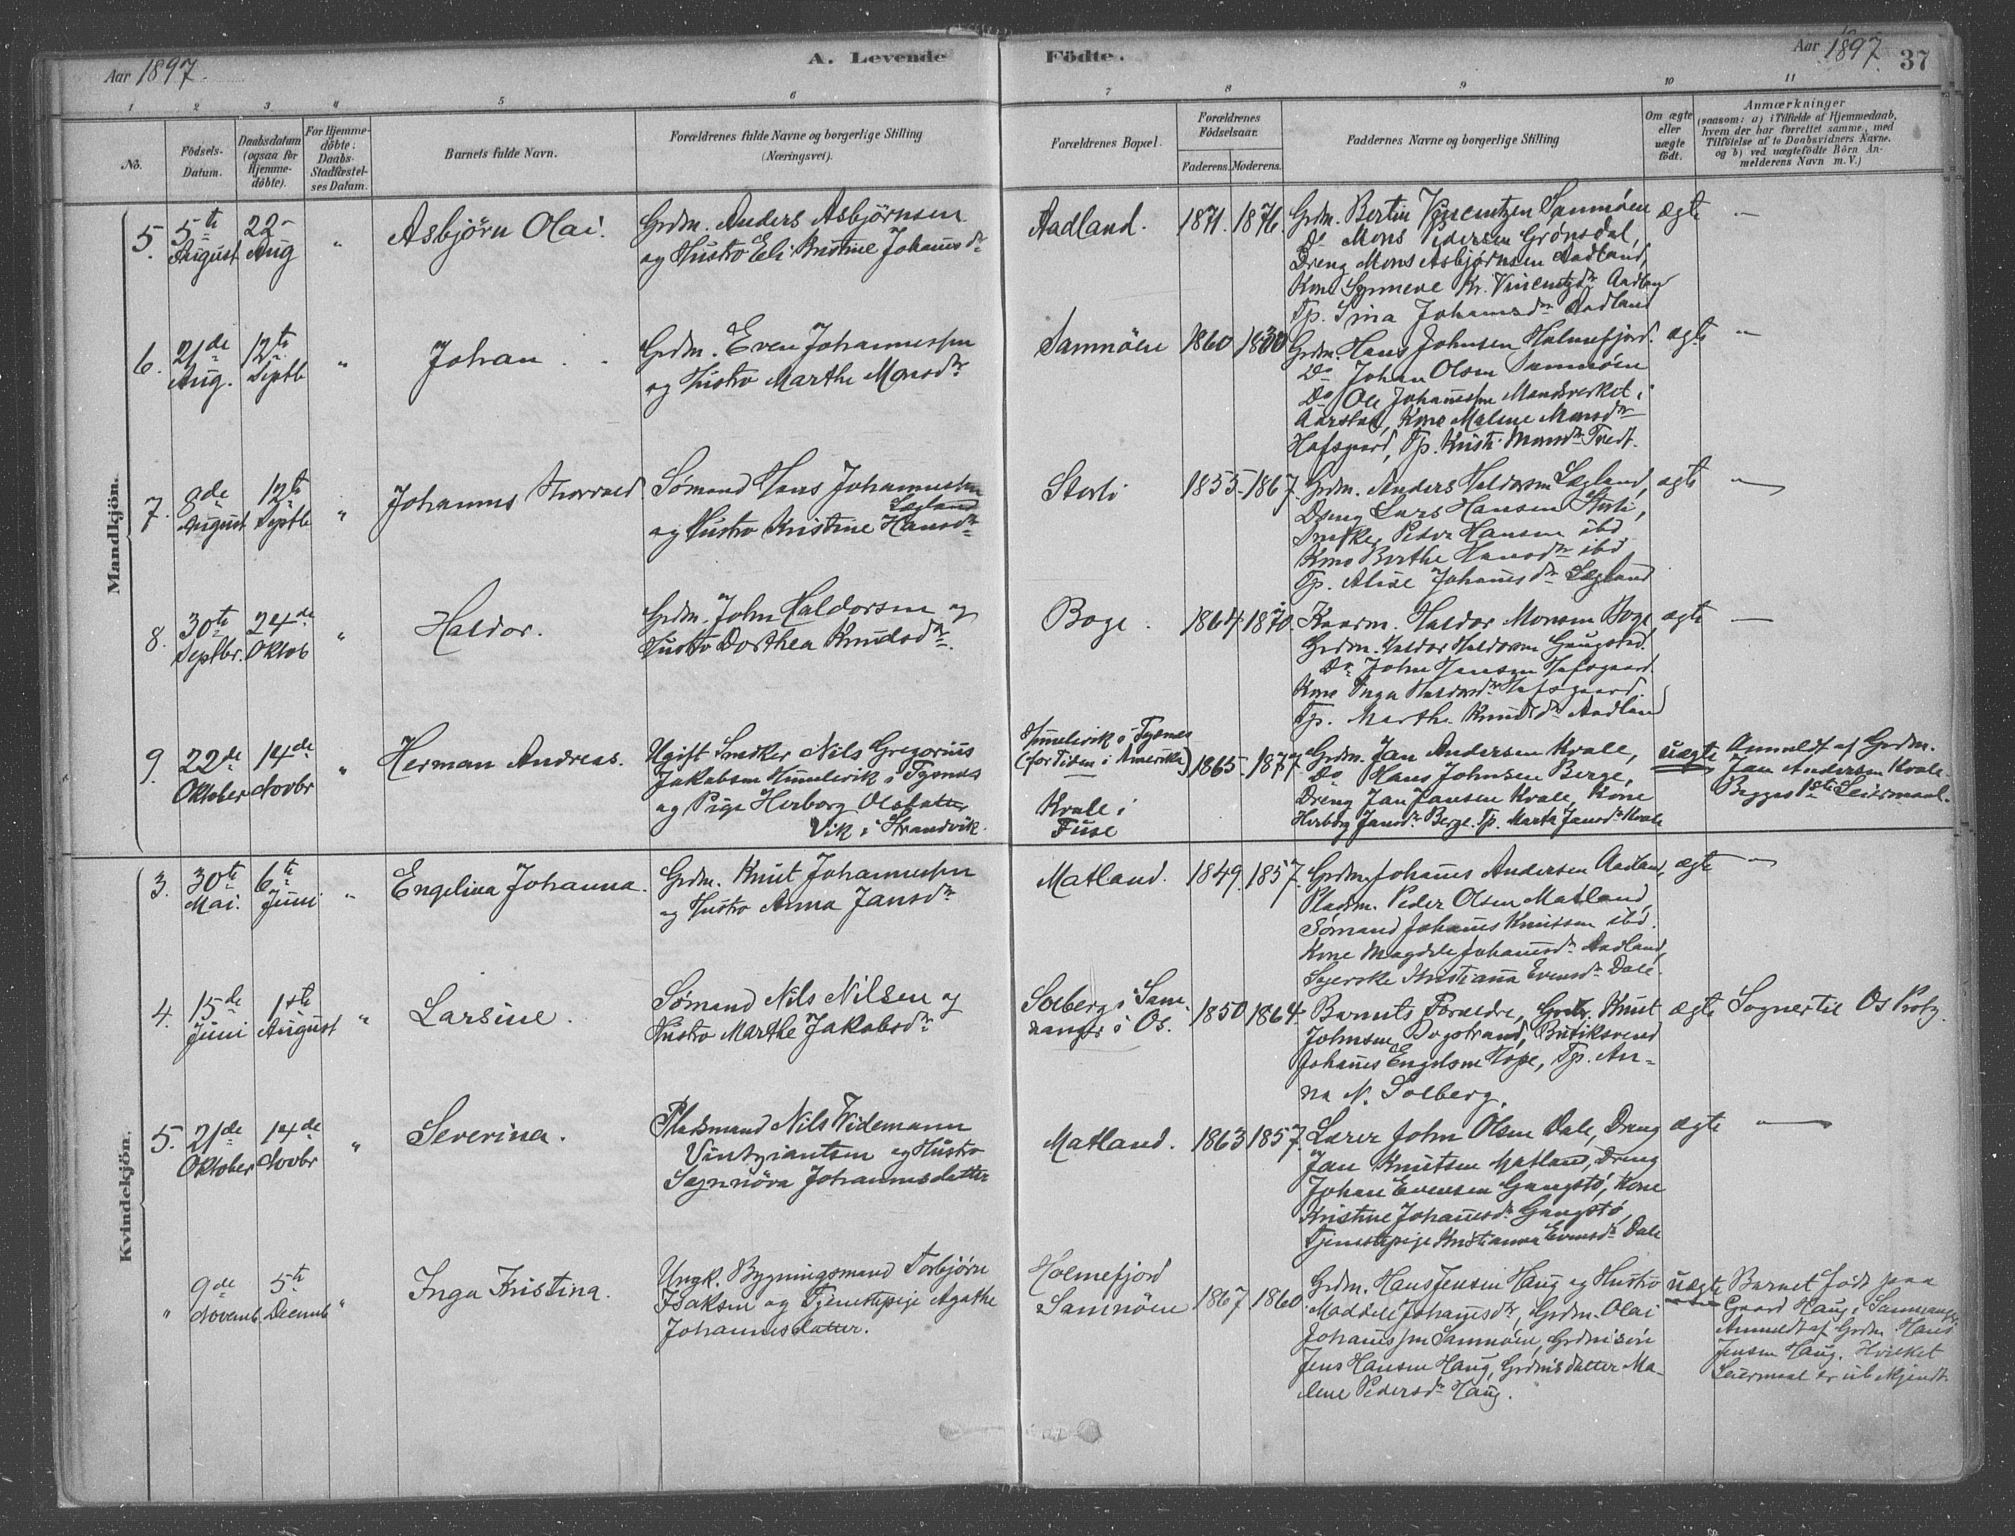 Aar 1897.
A. Levende Födte.
Aar 1897. 37
1 2 3 4 5 6 7 8 9 10 11
No.
Födsels-Datum.
Daabsdatum (ogsaa for Hjemme-döbte).
For Hjemme-döbte: Daabs-Stadfæstel-ses Datum.
Barnets fulde Navn.
Forældrenes fulde Navne og borgerlige Stilling (Næringsvei).
Forældrenes Bopæl.
Forældrenes Födselsaar.
Faderens. Moderens.
Faddernes Navne og borgerlige Stilling
Om ægte eller uægte födt.
Anmærkninger
(saasom: a) i Tilfælde af Hjemmedaab, hvem der har forrettet samme, med Tilföielse af to Daabsvidners Navne. og b) ved uægtefödte Börn An-melderens Navn m. V.)
Mandkjön.
5. 5te August 22 Aug " Asbjørn Olai.
Grdm. Anders Asbjørnsen
og Hustro Eli Kristine Johansdr
Aadland. 1871. 1876.
Grdm. Bertin Samnøen
Do Mons Pedersen Grønsdal,
Dreng Mons Asbjørnsen Aadland,
Kone Synneve Kr. Vincentsdr Aadland
Tp. Sina Johannesdr Aadland
ægte —
6. 21de Aug. 12te Septb " Johan.
Grdm. Even Johannessen
og Hustro Marthe Monsdr
Samnøen 1860
Grdm. Hans Johnsen Holmefjord.
Do Johan Olsen Samnøen
Do Ole Johannessen Mandsverket i
Aarstad, Kone Malene Monsdr
Hafsgaard, Tp. Kristi Monsdr Tvedt.
ægte —
7. 8de August 12te Septb " Johannes Thorvald
Sømand Hans Johannessen
Lægland
og Hustro Kristine Hansdr
Storli 1855 1867.
Grdm. Anders Haldorsen Lægland,
Dreng Lars Hansen Storli,
Snedker Peder Hansen ibd
Kone Berthe Hansdr ibd
Tp. Alise Johannesdr Lægland
ægte —
8. 30te Septbr. 24de Oktob " Haldor.
Grdm. John Haldorsen og
Hustro Dorthea Knudsdr
Boge. 1864. 1870.
Kaarm. Haldor Monsen Boge
Grdm. Haldor Haldorsen Gangstød.
Do John Hansen Hafsgaard.
Kone Inga Haldorsdr Hafsgaard.
Tp. Marthe Knudsdr Aadland
ægte —
9. 22de Oktober 14de Novbr " Herman Andreas.
Ugift Snedker Nils Gregorius
Jakobsen Hummelvik i Tysnes
og Pige Herborg Olsdatter
Vik i Strandvik.
Hummelvik i Tysnes
(for Tiden i Amerika)
Kvale i
Fuse
1865 1877.
Grdm. Jan Andersen Kvale,
Do Hans Johnsen Berge,
Dreng Jan Jansen Kvale, Kone
Herborg Jansdr Berge. Tp. Marta Jansdr Kvale
uægte
Anmeldt af Grdm.
Jan Andersen Kvale
Begges 1ste Leiermaal.
Kvindekjön.
3. 30te Mai. 6te Juni " Engelina Johanna.
Grdm. Knut Johannessen
og Hustro Anna Jansdr
Matland. 1849. 1857.
Grdm. Johannes Andersen Aadland,
Pladsm. Peder Olsen Matland,
Sømand Johannes Knutsen ibd.
Kone Magdele Johannesdr Aadland,
Syerske Kristianna Evensdr Dale.
ægte —
4. 15de Juni 1ste August " Larsine.
Sømand Nils Nilsen og
Hustro Marthe Jakobsdr
Solberg i Sam-
nanger i Os.
1850 1864.
Barnets Forældre, Grdbr. Knut
Johnsen Dogstrand, Butiksvend
Johannes Engelsen Hope, Tp. An-
na N. Solberg.
ægte
Sogner til Os Prstg.
5. 21de Oktober 14de Novbr " Severina.
Pladsmand Nils Widemann
Vintziantsen og Hustro
Sygnnøva Johannesdatter
Matland. 1863 1857.
Lærer John Olsen Dale, Dreng
Jan Knutsen Matland, Dreng
Johan Evensen Gangstø, Kone
Kristine Johannesdr Gangstø,
Tjenestepige Kristianna Evensdr Dale
ægte —
" 9de Novemb. 5te Decemb " Inga Kristina.
Ungk. Bygningsmand Torbjørn
Isaksen og Tjenestepige Agathe
Johannesdatter.
Holmefjord
Samnøen
1867 1860
Grdm. Hans Jensen Haug og Hustro
Maddele Johannesdr, Grdm. Olai
Johannessen Samnøen, Grdmsøn
Jens Hansen Haug, Grdmsdatter Ma-
lene Pedersdr Haug.
uægte
Barnet født paa
Gaard Haug i Samnanger,
Anmeldt af Grdm. Hans
Jensen Haug. Hvilket
Leiermaal er ubekjendt